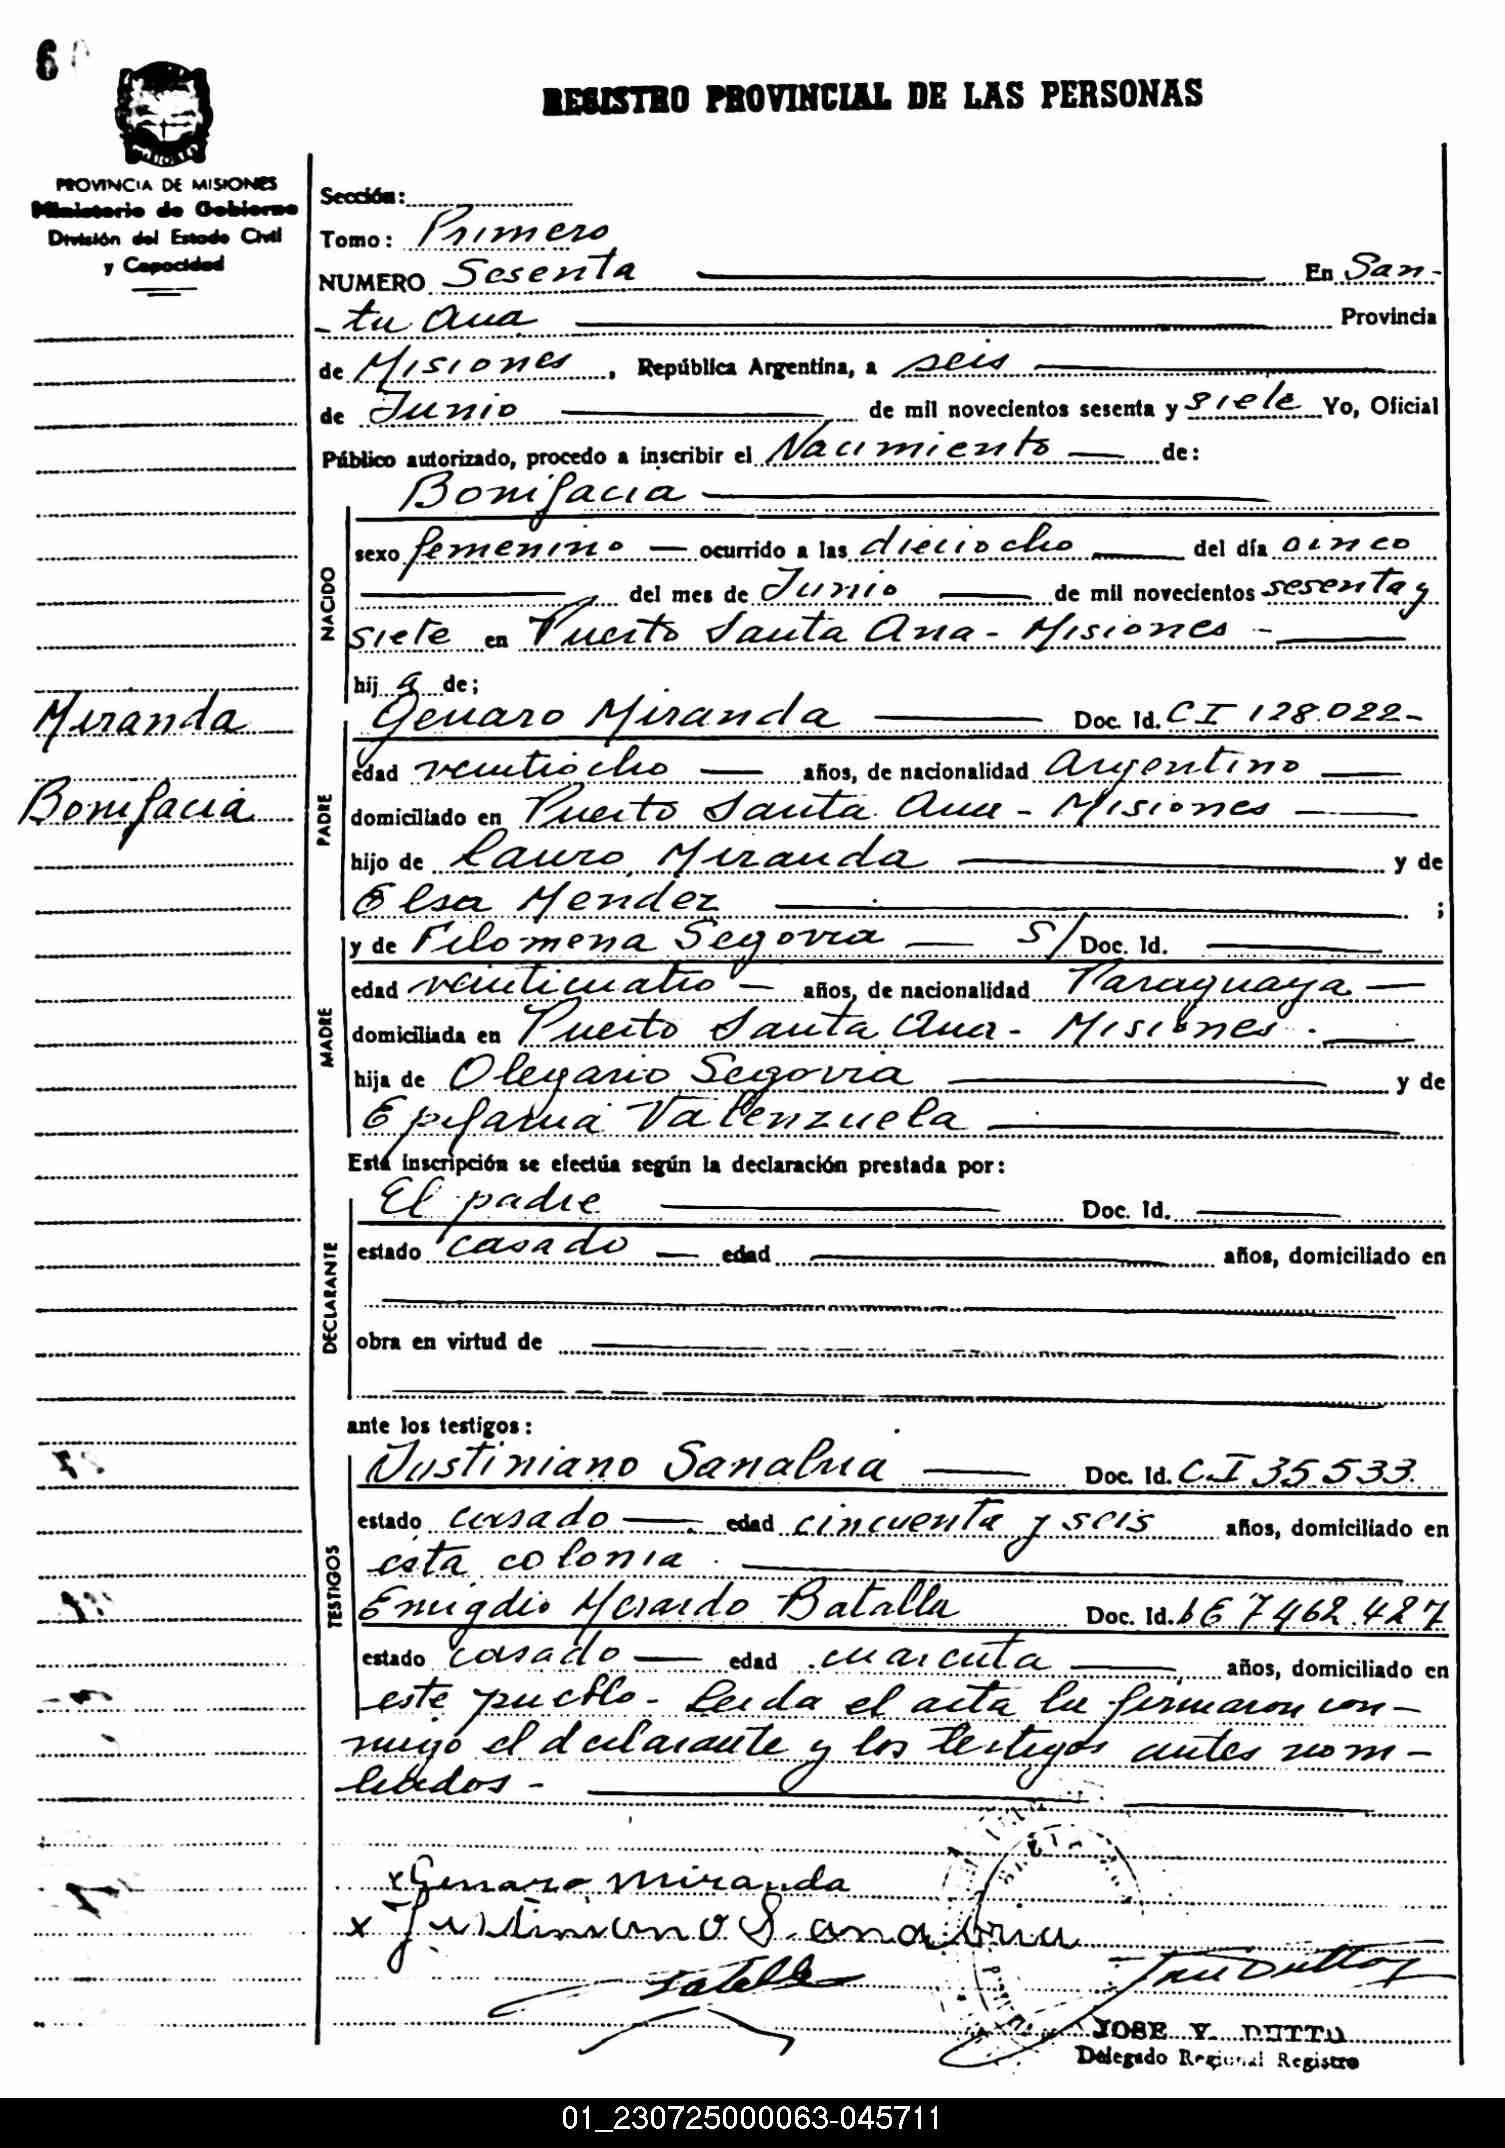 6
REGISTRO PROVINCIAL DE LAS PERSONAS
PROVINCIA DE MISIONES
Ministerio de Gobierno
División del Estado Civil
y Capacidad
Sección:
Tomo: Primero
NUMERO Sesenta En San-
ta Ana Provincia
de Misiones, República Argentina, a seis
de Junio de mil novecientos sesenta y siete Yo, Oficial
Público autorizado, procedo a inscribir el Nacimiento de:
Bonifacia
NACIDO
sexo femenino ocurrido a las dieciocho del día cinco
del mes de Junio de mil novecientos sesenta y
siete en Puerto Santa Ana - Misiones -
hija de;
Miranda
Bonifacia
PADRE
Genaro Miranda Doc. Id. CI 128.022-
edad veintiocho años, de nacionalidad Argentino
domiciliado en Puerto Santa Ana - Misiones
hijo de Lauro Miranda y de
Elsa Mendez ;
MADRE
y de Filomena Segovia S/ Doc. Id.
edad veinticuatro años, de nacionalidad Paraguaya
domiciliada en Puerto Santa Ana - Misiones.
hija de Olegario Segovia y de
Epifania Valenzuela
Esta inscripción se efectúa según la declaración prestada por:
DECLARANTE
El padre Doc. Id.
estado casado edad años, domiciliado en
obra en virtud de
ante los testigos:
TESTIGOS
Justiniano Sanabria Doc. Id. C.I 35.533.
estado casado edad cincuenta y seis años, domiciliado en
esta colonia
Emigdio Batalla Doc. Id. 7462.427
estado casado edad cuarenta años, domiciliado en
este pueblo - Leida el acta la firmaron con-
migo el declarante y los testigos antes nom-
brados -
x Genaro Miranda
x Justiniano Sanabria
Batalla
JOSE V. DUTTO
Delegado Regional Registro
01_230725000063-045711